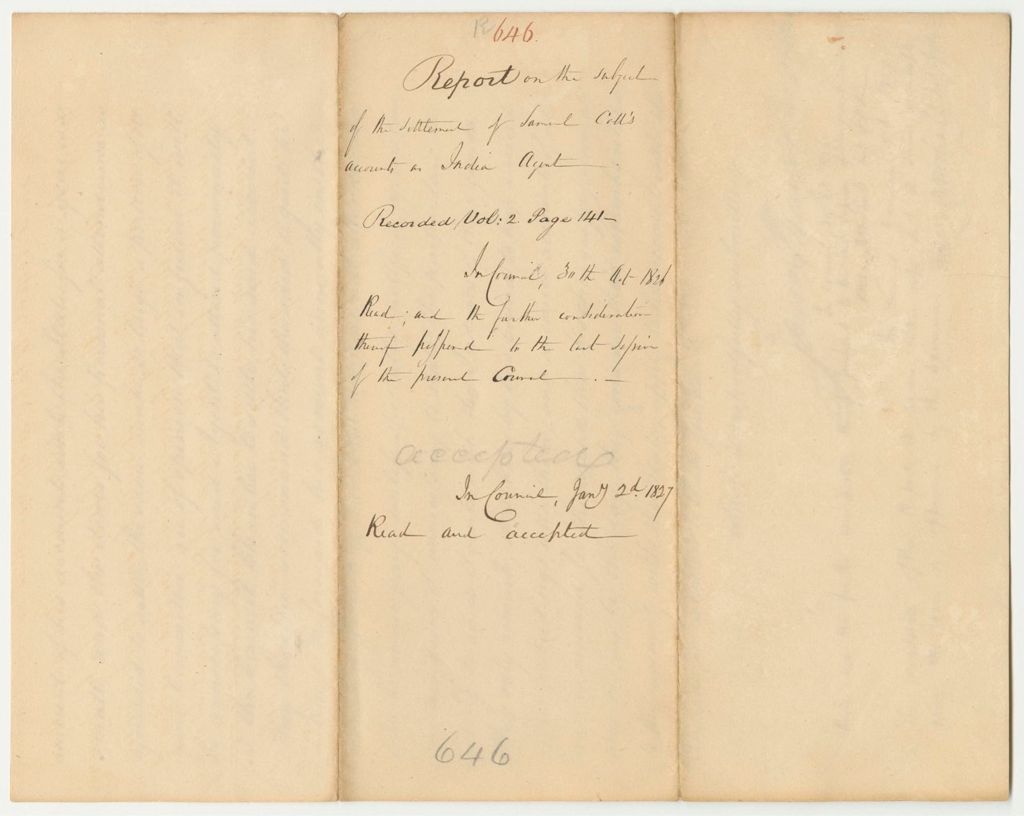 R 646.
Report on the subject
of the settlement of Samuel Call's
accounts as India Agent.
Recorded Vol: 2. Page 141
In Council, 30th Oct 1826
Read; and the further consideration
thereof postponed to the last session
of the present Council.
accepted
In Council, Jany 2d. 1827
Read and accepted
646